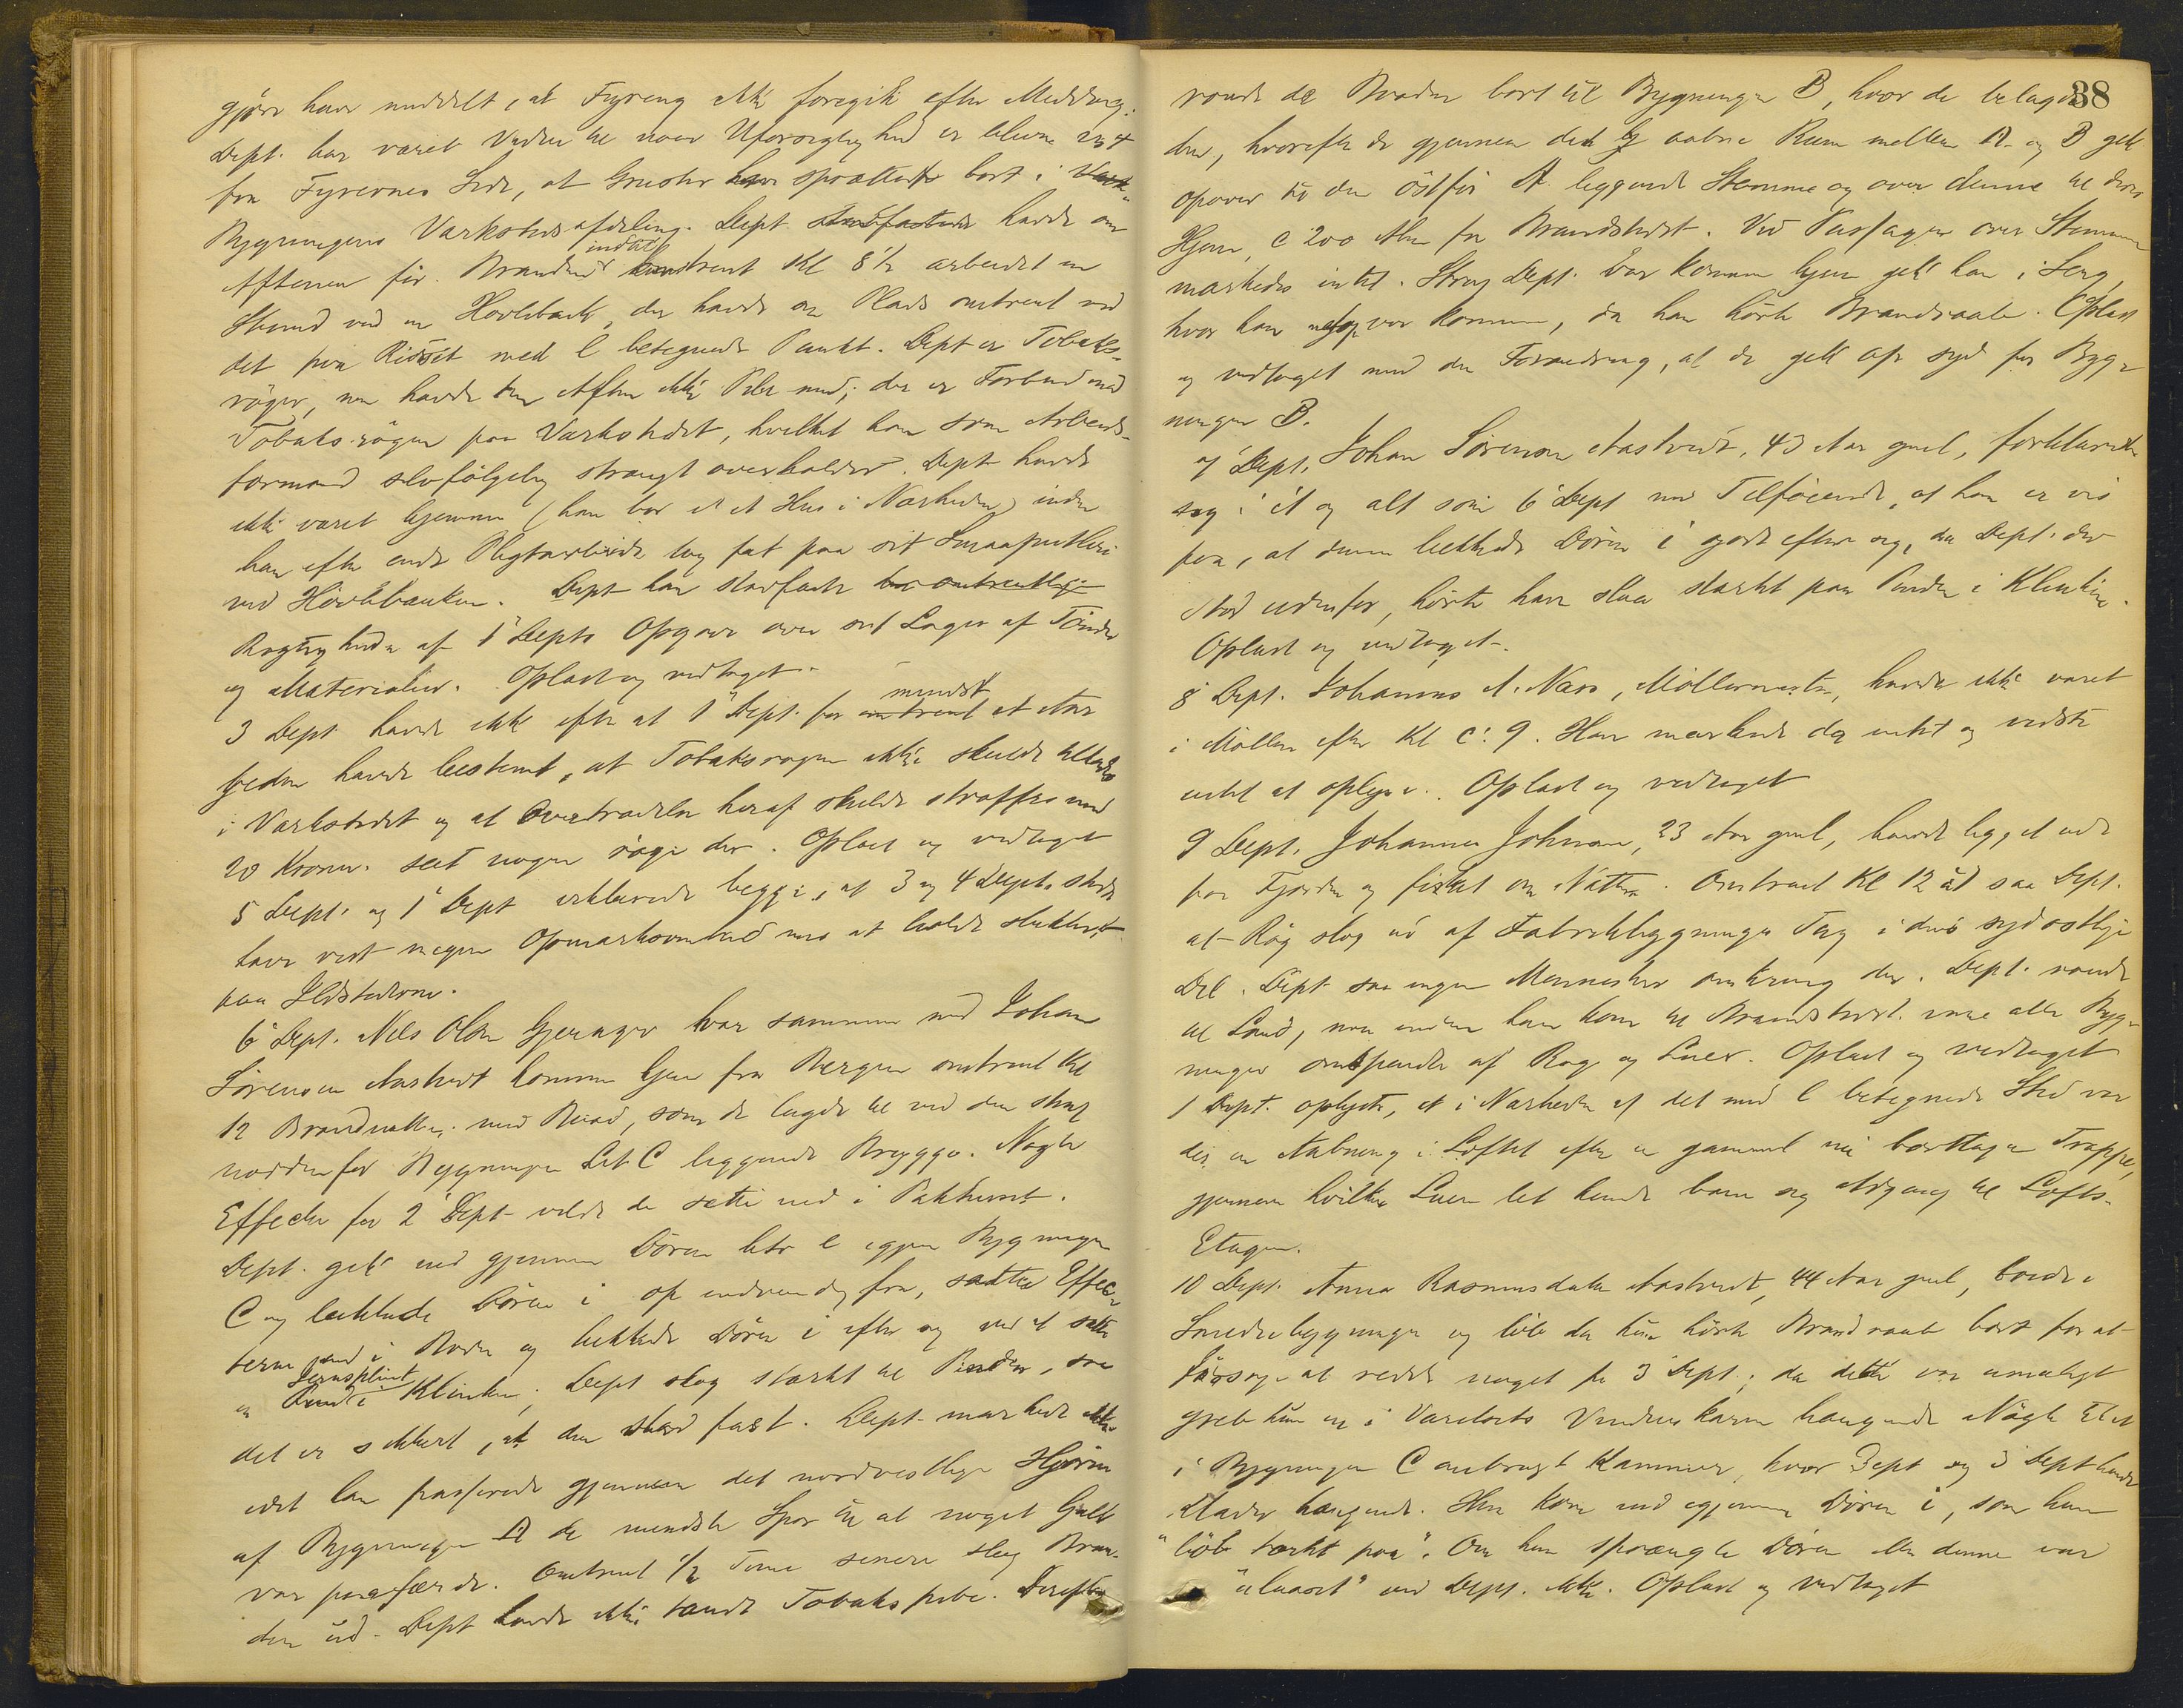 gjøre have meddelt, at Fyring ikke foregik efter Middag.
Dept. har været Vidne til noen Uforsigtighed er bleven
fra Fyrernes Side, at Gnister sprattet bort i
Bygningens Værkstedsafdeling. Dept havde om
Aftenen før Branden indtil Kl 8½ arbeidet en
Stund ved en Høvlebænk, der havde sin Plads omtrent ved
det paa Ridset med l betegnede Punkt. Dept er Tobaks-
røger, men havde den Aften ikke Pibe med; der er Forbud mod
Tobaksrøgen paa Værkstedet, hvilket han som Arbeids-
formand selvfølgelig strængt overholder. Dept havde
ikke været hjemme (han bor i et Hus i Nærheden) inden
han efter endt tog fat paa sit
ved Høvlebænken. Dept kan stadfæste
Rigtigheden af 1' Depts Opgave over sit Lager af Tønder
og Materialier. Oplæst og vedtaget.
3 Dept havde ikke efter at 1' Dept. for mindst et Aar
siden havde bestemt, at Tobaksrøgen ikke skulde tillades
i Værkstedet og at Overtrædelse heraf skulde straffes med
20 Kroner seet nogen røge der. Oplæst og vedtaget
5 Dept. og 1' Dept erklærede begge, at 3 og 4 Depts
have vist megen Opmærksomhed med at holde slukket
paa Ildstederne.
6' Dept. Nils Olsen Gjerager var sammen med Johan
Sørensen Aastvedt kommen hjem fra Bergen omtrent Kl
12 Brandnatten med Baad, som de lagde til ved den strax
nordenfor Bygningen Lit C liggende Brygge. Nogle
Effecter for 2' Dept vilde de sætte ind i Pakhuset.
Dept. gik ind gjennem Døren litr e i Bygningen
C og lukkede Døren i op indvendig fra, satte Effec-
terne ind i Boden og lukkede Døren i efter sig ved at sætte
en Jernsplint i Klinken; Dept slog stærkt til Pinden, saa
det er sikkert, at den stod fast. Dept mærkede ikke
idet han passerede gjennem det nordvestlige Hjørne
af Bygningen A de mindste Spor til at noget Galt
var paafærde. Omtrent ½ Time senere slog Bran-
den ud. Dept havde ikke tændt Tobakspibe. Derefter
38
roede de Baaden bort til Bygningen B, hvor de belagde
den, hvorefter de gjennem det aabne Rum mellem A og B gik
opover til den østfor A liggende Stemme og over denne til deres
Hjem, c 200 Alen fra Brandstedet. Ved Passagen over Stemmen
mærkedes intet. Strax Dept. var kommen hjem gik han i Seng,
hvor han netop var kommen, da han hørte Brandraabe. Oplæst
og vedtaget med den Forandring, at de gik op syd for Byg-
ningen B.
7' Dept. Johan Sørensen Aastvedt, 43 Aar gml, forklarede
sig i et og alt som 6' Dept med Tilføiende, at han er vis
paa, at denne lukkede Døren i godt efter sig, da Dept. der
stod udenfor, hørte ham slaa stærkt paa Pinden i Klinken.
Oplæst og vedtaget.
8' Dept. Johannes A. Næss, Møllermester, havde ikke været
i Møllen efter Kl c: 9. Han mærkede da intet og vidste
intet at oplyse. Oplæst og vedtaget
9 Dept. Johannes Johnsen, 23 Aar gml, havde ligget ude
paa Fjorden og fisket om Natten. Omtrent Kl 12 saa Dept.
at Røg slog ud af Fabrikbygningens Tag i dens sydostlige
Del. Dept saa ingen Mennesker omkring der. Dept. roede
til Land, men inden han kom til Brandstedet vare alle Byg-
ninger omspændte af Røg og Luer. Oplæst og vedtaget
1 Dept. oplyste, at i Nærheden af det med l betegnede Sted var
der en Aabning i Loftet efter en gammel nu borttagen Trappe,
gjennem hvilken Luen let kunde bane sig Adgang til Lofts-
Etagen.
10 Dept. Anna Rasmusdatter Aastvedt, 44 Aar gml, boede i
Smediebygningen og løb da hun hørte Brandraabe bort for at
forsøge at redde noget for 3 Dept.; da dette var umuligt
greb hun en i Vindueskarm hængende Nøgle til et
i Bygningen C anbragt Kammer, hvor Dept og 3 Dept havde
Klæder hængende. Hun kom ind igjennem Døren i, som hun
"løb tverkt paa". Om hun sprængte Døren eller denne var
"ulaaset" ved Dept. ikke. Oplæst og vedtaget